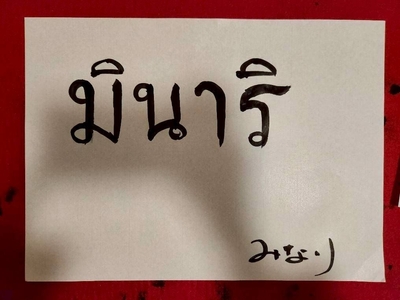 มินาริ
みなり